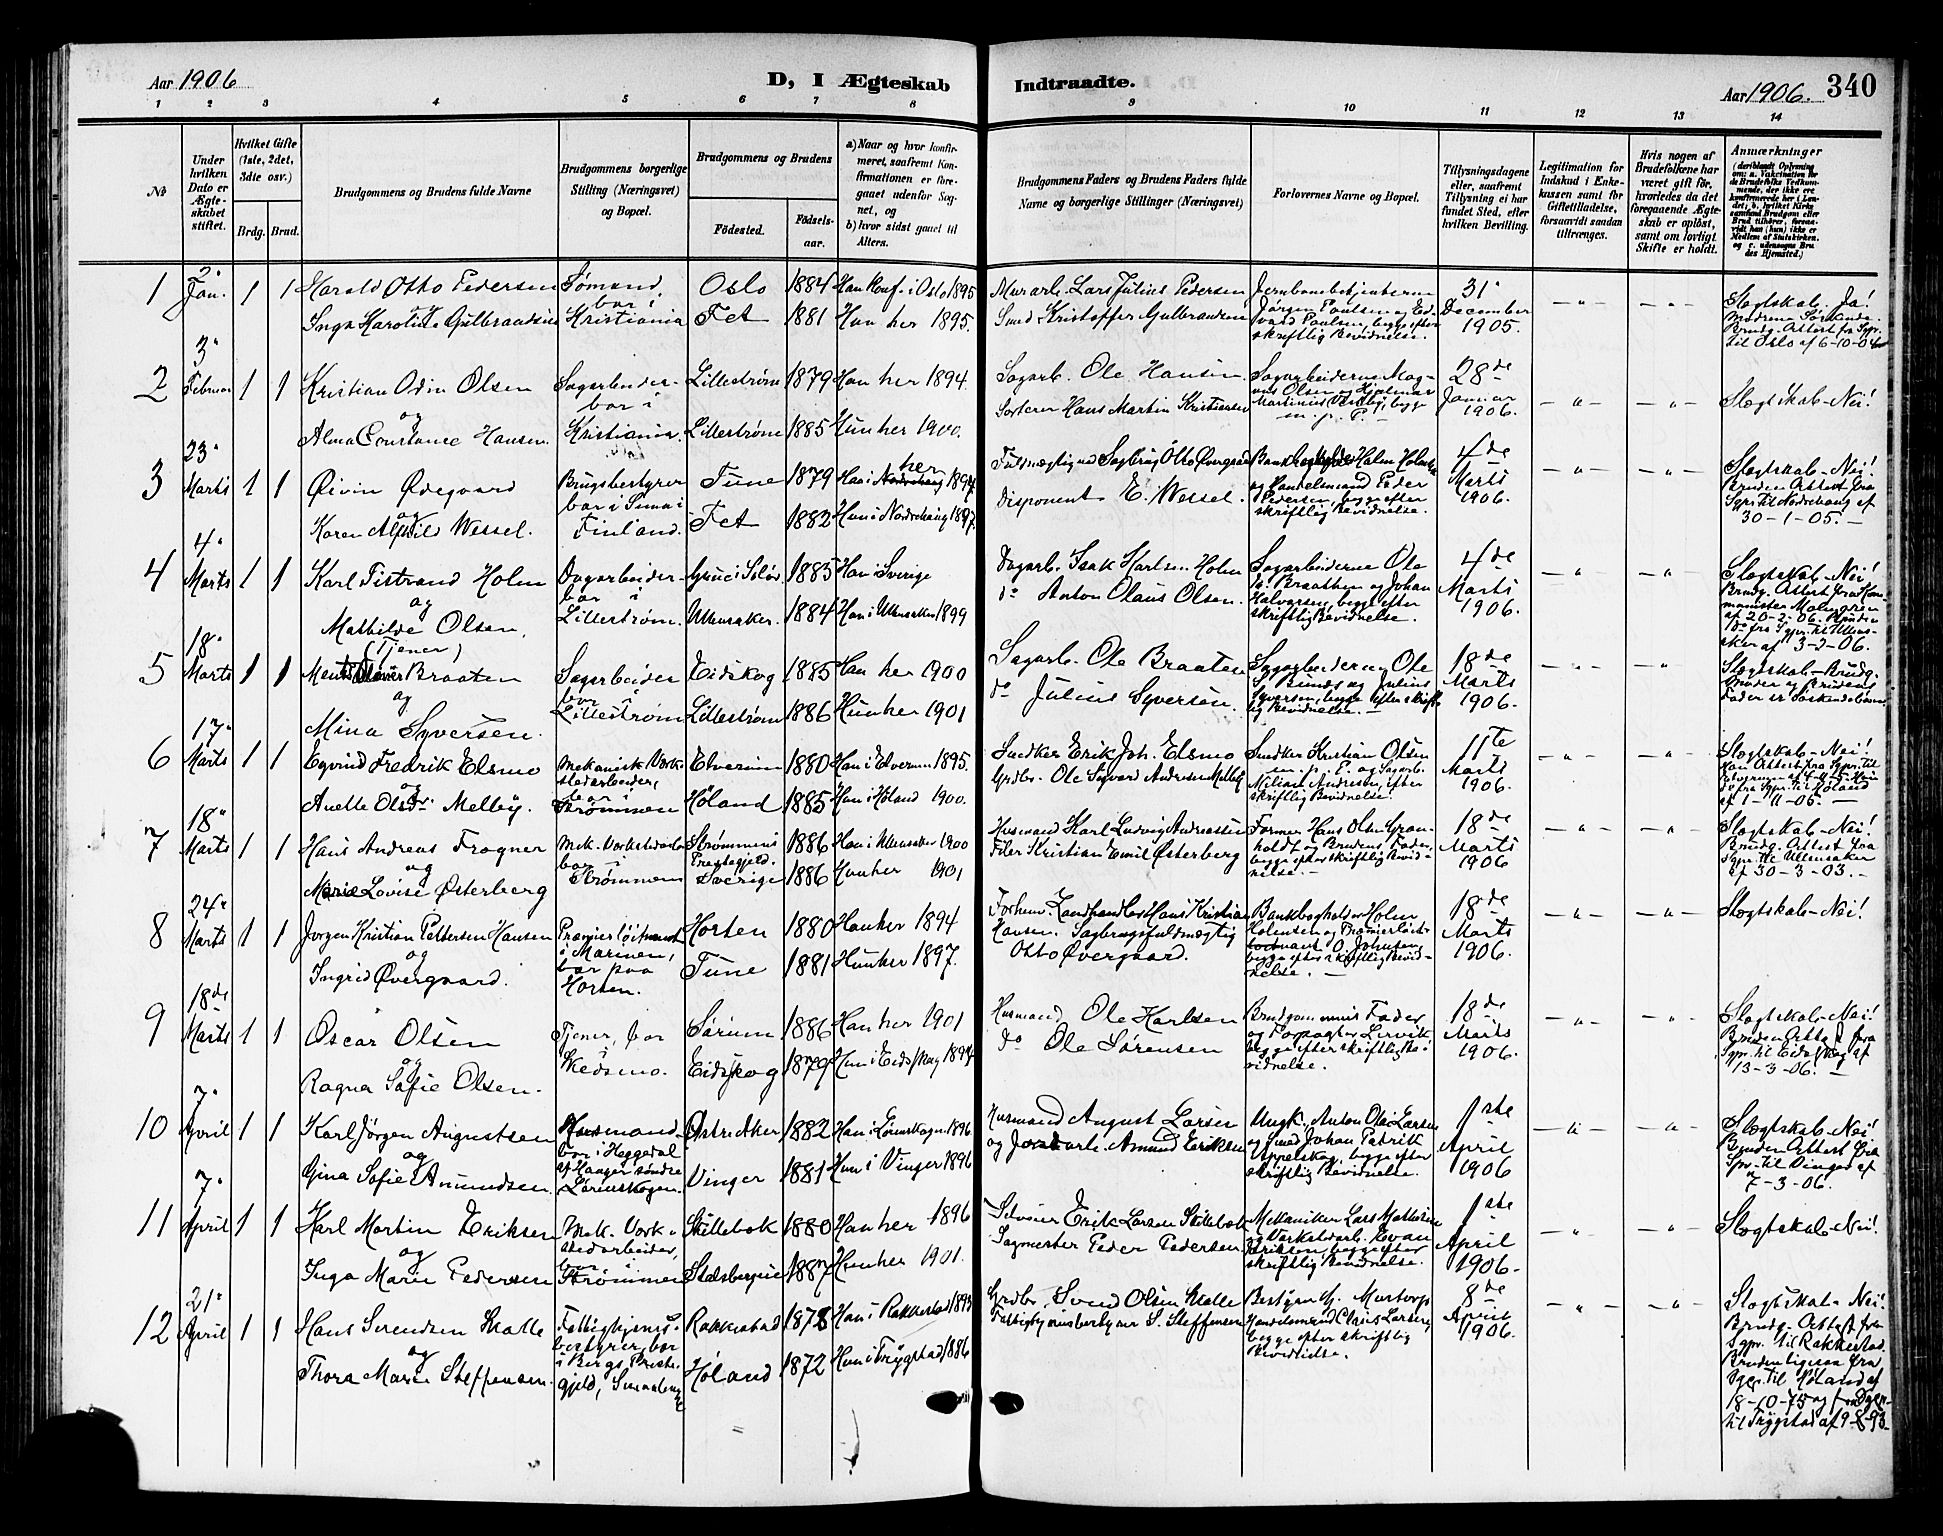 Aar 1906
D, I Ægteskab
Indtraadte.
Aar 1906. 340
1 2 3 4 5 6 7 8 9 10 11 12 13 14
No
Under hvilken Dato er Ægteskabet stiftet.
Hvilket Gifte (1ste, 2det, 3die osv.)
Brdg. Brud.
Brudgommens og Brudens fulde Navne
Brudgommens borgerlige Stilling (Næringsvei) og Bopæl.
Brudgommens og Brudens
Fødested.
Fødselsaar.
a) Naar og hvor konfirmeret, saafremt Konfirmationen er foregaaet udenfor Sognet, og
b) hvor sidst gaaet til Alters.
Brudgommens Faders og Brudens Faders fulde Navne og borgerlige Stillinger (Næringsvei)
Forlovernes Navne og Bopæl.
Tillysningsdagene eller, saafremt Tillysning ei har fundet Sted, efter hvilken Bevilling.
Legitimation for Indskud i Enkekassen samt for Giftetilladelse, forsaavidt saadan tiltrænges.
Hvis nogen af Brudefolkene har været gift før, hvorledes da det foregaaende Ægteskab er opløst, samt om lovligt Skifte er holdt.
Anmærkninger
1 2. Jan. 1 1 Harald Otto Pedersen og Inga Karoline Gulbrandsen
Sømand, bor i Kristiania
Oslo 1884 Han Konf. i Oslo 1895
Fet 1881 Hun her 1895.
Murarb. Lars Julius Pedersen
Smed Kristoffer Gulbrandsen
Jernbanebetjenterne Jørgen Paulsen og Edvard Paulsen, begge efter skriftlig Bevidnelse.
31. December 1905.
Slegtskab. Ja! Mødrene Søskende. Brudg. Attest fra Spr. til Oslo af 6-10-04
2 3. Februar 1 1 Kristian Odin Olsen og Alma Constance Hansen.
Sagarbeider bor i Kristiania.
Lillestrøm 1879 Han her 1894.
Lillestrøm 1885 Hun her 1900.
Sagarb. Ole Hansen
Sorterer Hans Martin Kristiansen
Sagarbeiderne Magnus Olsen og Hjalmar Martinius begge m. p. P.
28de Januar 1906.
Slegtskab - Nei!
3 23. Marts 1 1 Øivin Ødegaard og Karen Alfhild Wessel.
Brugsbestyrer bor i Finland.
Tune 1879 Han i her 1894
Fet 1882 Hun i Nordrehaug 1897.
Fuldmægtig ved Sagbrug Otto Øvergaard
Disponent E. Wessel.
Bankbogholder Holm Holmsen og Handelsmand Peder Pedersen, begge efter skriftlig Bevidnelse.
4de Marts 1906.
Slegtskab - Nei! Bruden Attest fra Spr. til Nordrehaug af 30-1-05.
4 4. Marts 1 1 Karl Tistrand Holm og Mathilde Olsen, (Tjener)
Dagarbeider bor i Lillestrøm.
Grue i Solør 1885 Han i Sverige
Ullensaker. 1884 Hun i Ullensaker 1899
Dagarb. Isak Karlsen Holm
do Anton Olaus Olsen.
Sagarbeiderne Ole Braathen og Johan Halvorsen, begge efter skriftlig Bevidnelse.
4de Marts 1906.
Slegtskab - Nei! Brudg. Attest fra Malmgren af 20-2-06. Bruden do fra Spr. til Ullensaker af 3-3-06.
5 18. Marts 1 1 Braaten og Mina Syversen.
Sagarbeider bor i Lillestrøm
Eidskog 1885 Han her 1900
Lillestrøm 1886 Hun her 1901
Sagarb. Ole Braaten
do Julius Syversen.
Sagarbeiderne Ole S. og Julius Syversen, begge efter skriftlig Bevidnelse.
18de Marts 1906.
Slegtskab - Brudg. Moder og Brudens Fader er Søskendebørn
6 17. Marts 1 1 Eyvind Fredrik Elsmo og Anette Olsdr. Melby.
Mekanisk Verkstedarbeider, bor i Strømmen
Elverum 1880 Han i Elverum 1895.
Høland 1885 Hun i Høland 1900.
Snedker Erik Joh. Elsmo
Grdbr. Ole Sigvard Andersen Melby
Snedker Kristian Olsen m. p. P. og Sagarb. Milian Andersen, efter skriftlig Bevidnelse.
11te Marts 1906.
Slegtskab - Nei! Han Attest fra Spr. til Hun do fra Spr. til Høland af 1-11-05.
7 18. Marts 1 1 Hans Andreas Frogner og Marie Lovise Østerberg
Mek. Verkstedarb. bor i Strømmen
Strømmens Prestegjeld. 1886 Han i Ullensaker 1900
Sverige 1886 Hun her 1901
Husmand Karl Ludvig Andreassen
Filer Kristian Emil Østerberg
Former Hans Olsen Granholdt og Brudens Fader, begge efter skriftlig Bevidnelse.
18de Marts 1906
Slegtskab - Nei! Brudg. Attest fra Spr. til Ullensaker af 30-3-03.
8 24. Marts 1 1 Jørgen Kristian Pettersen Hansen og Ingrid Øvergaard.
Premierløitnant i Marinen, bor paa Horten.
Horten 1880 Han her 1894
Tune 1881 Hun her 1897.
Forhenv. Landhandler Hans Kristian Hansen. Sagbrugsfuldmægtig Otto Øvergaard.
Bankbogholder Holm Holmsen og Premierløitnant O. Johnsen, begge efter skriftlig Bevidnelse.
18de Marts 1906.
Slegtskab - Nei!
9 18de Marts 1 1 Oscar Olsen og Ragna Sofie Olsen.
Tjener, bor Skedsmo.
Sørum 1886 Han her 1901
Eidskog 1879 Hun i Eidskog 1894
Husmand Ole Karlsen
do Ole Sørensen
Brudgommens Fader og Lervik begge efter skriftlig Bevidnelse.
18de Marts 1906.
Slegtskab - Nei! Bruden Attest fra Spr. til Eidskog af 13-3-06.
10 7. April 1 1 Karl Jørgen Augustsen og Gina Sofie Amundsen
Husmand bor i Heggedal af Haager søndre Lørenskogen.
Østre Aker 1882 Han i Lørenskogen 1896
Vinger 1881 Hun i Vinger 1896
Husmand August Larsen
og Jordarb. Amund Eriksen
Ungk. Anton Ole Larsen og Smed Johan Patrik Uppelskog, begge efter skriftlig Bevidnelse.
1ste April 1906
Slegtskab - Nei! Bruden Attest fra Spr. til Vinger af 7-3-06.
11 7. April 1 1 Karl Martin Eriksen og Inga Marie Pedersen
Mek. Verkstedarbeider, bor i Strømmen
Skillebæk 1880 Han her 1896
Stalsberg 1887 Hun her 1901.
Selveier Erik Larsen Skillebæk
Sagmester Peder Pedersen
Mekaniker Lars Mathisen og Verkstedarb. Edvan Eriksen, begge efter skriftlig Bevidnelse.
1ste April 1906.
Slegtskab - Nei!
12 21. April 1 1 Hans Svendsen Molle og Thora Marie Steffensen.
Fattighjemsbestyrer, bor i Bergs Prestegjeld, Smaalenene
Rakkestad 1878 Han i Rakkestad 1893
Høland 1872 Hun i Trygstad 1886
Grdbr. Svend Olsen Molle
Fattighjemsbestyrer S. Steffensen
Bestyrer G. Mastorp Handelsmand Chris. Larsen, begge efter skriftlig Bevidnelse.
8de April 1906.
Slegtskab - Nei! Brudg. Attest fra Spr. til Rakkestad. Bruden ligesaa fra Spr. til Høland af 18-10-75 og fra Spr. til Trygstad af 9-8-93